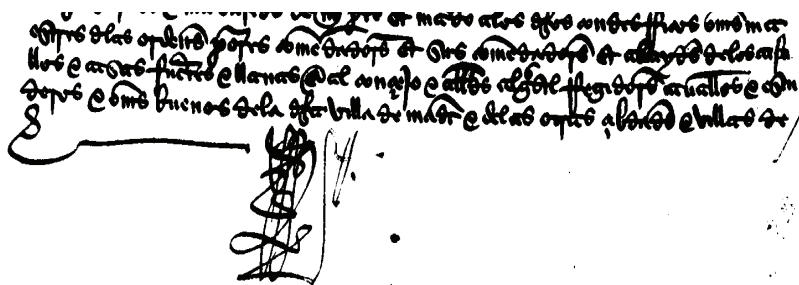 et mando a los dhos condes rricos oms ma
estres dlas ordens priores comendadors et sus comendadors et alcaydes delos casti
llos e casas fuertes e llanas e al conçejo e alldes alguazil rregidors caualleros e escu
deros e oms buenos dela dha villa de madrit e de las otras çibdades e villas de